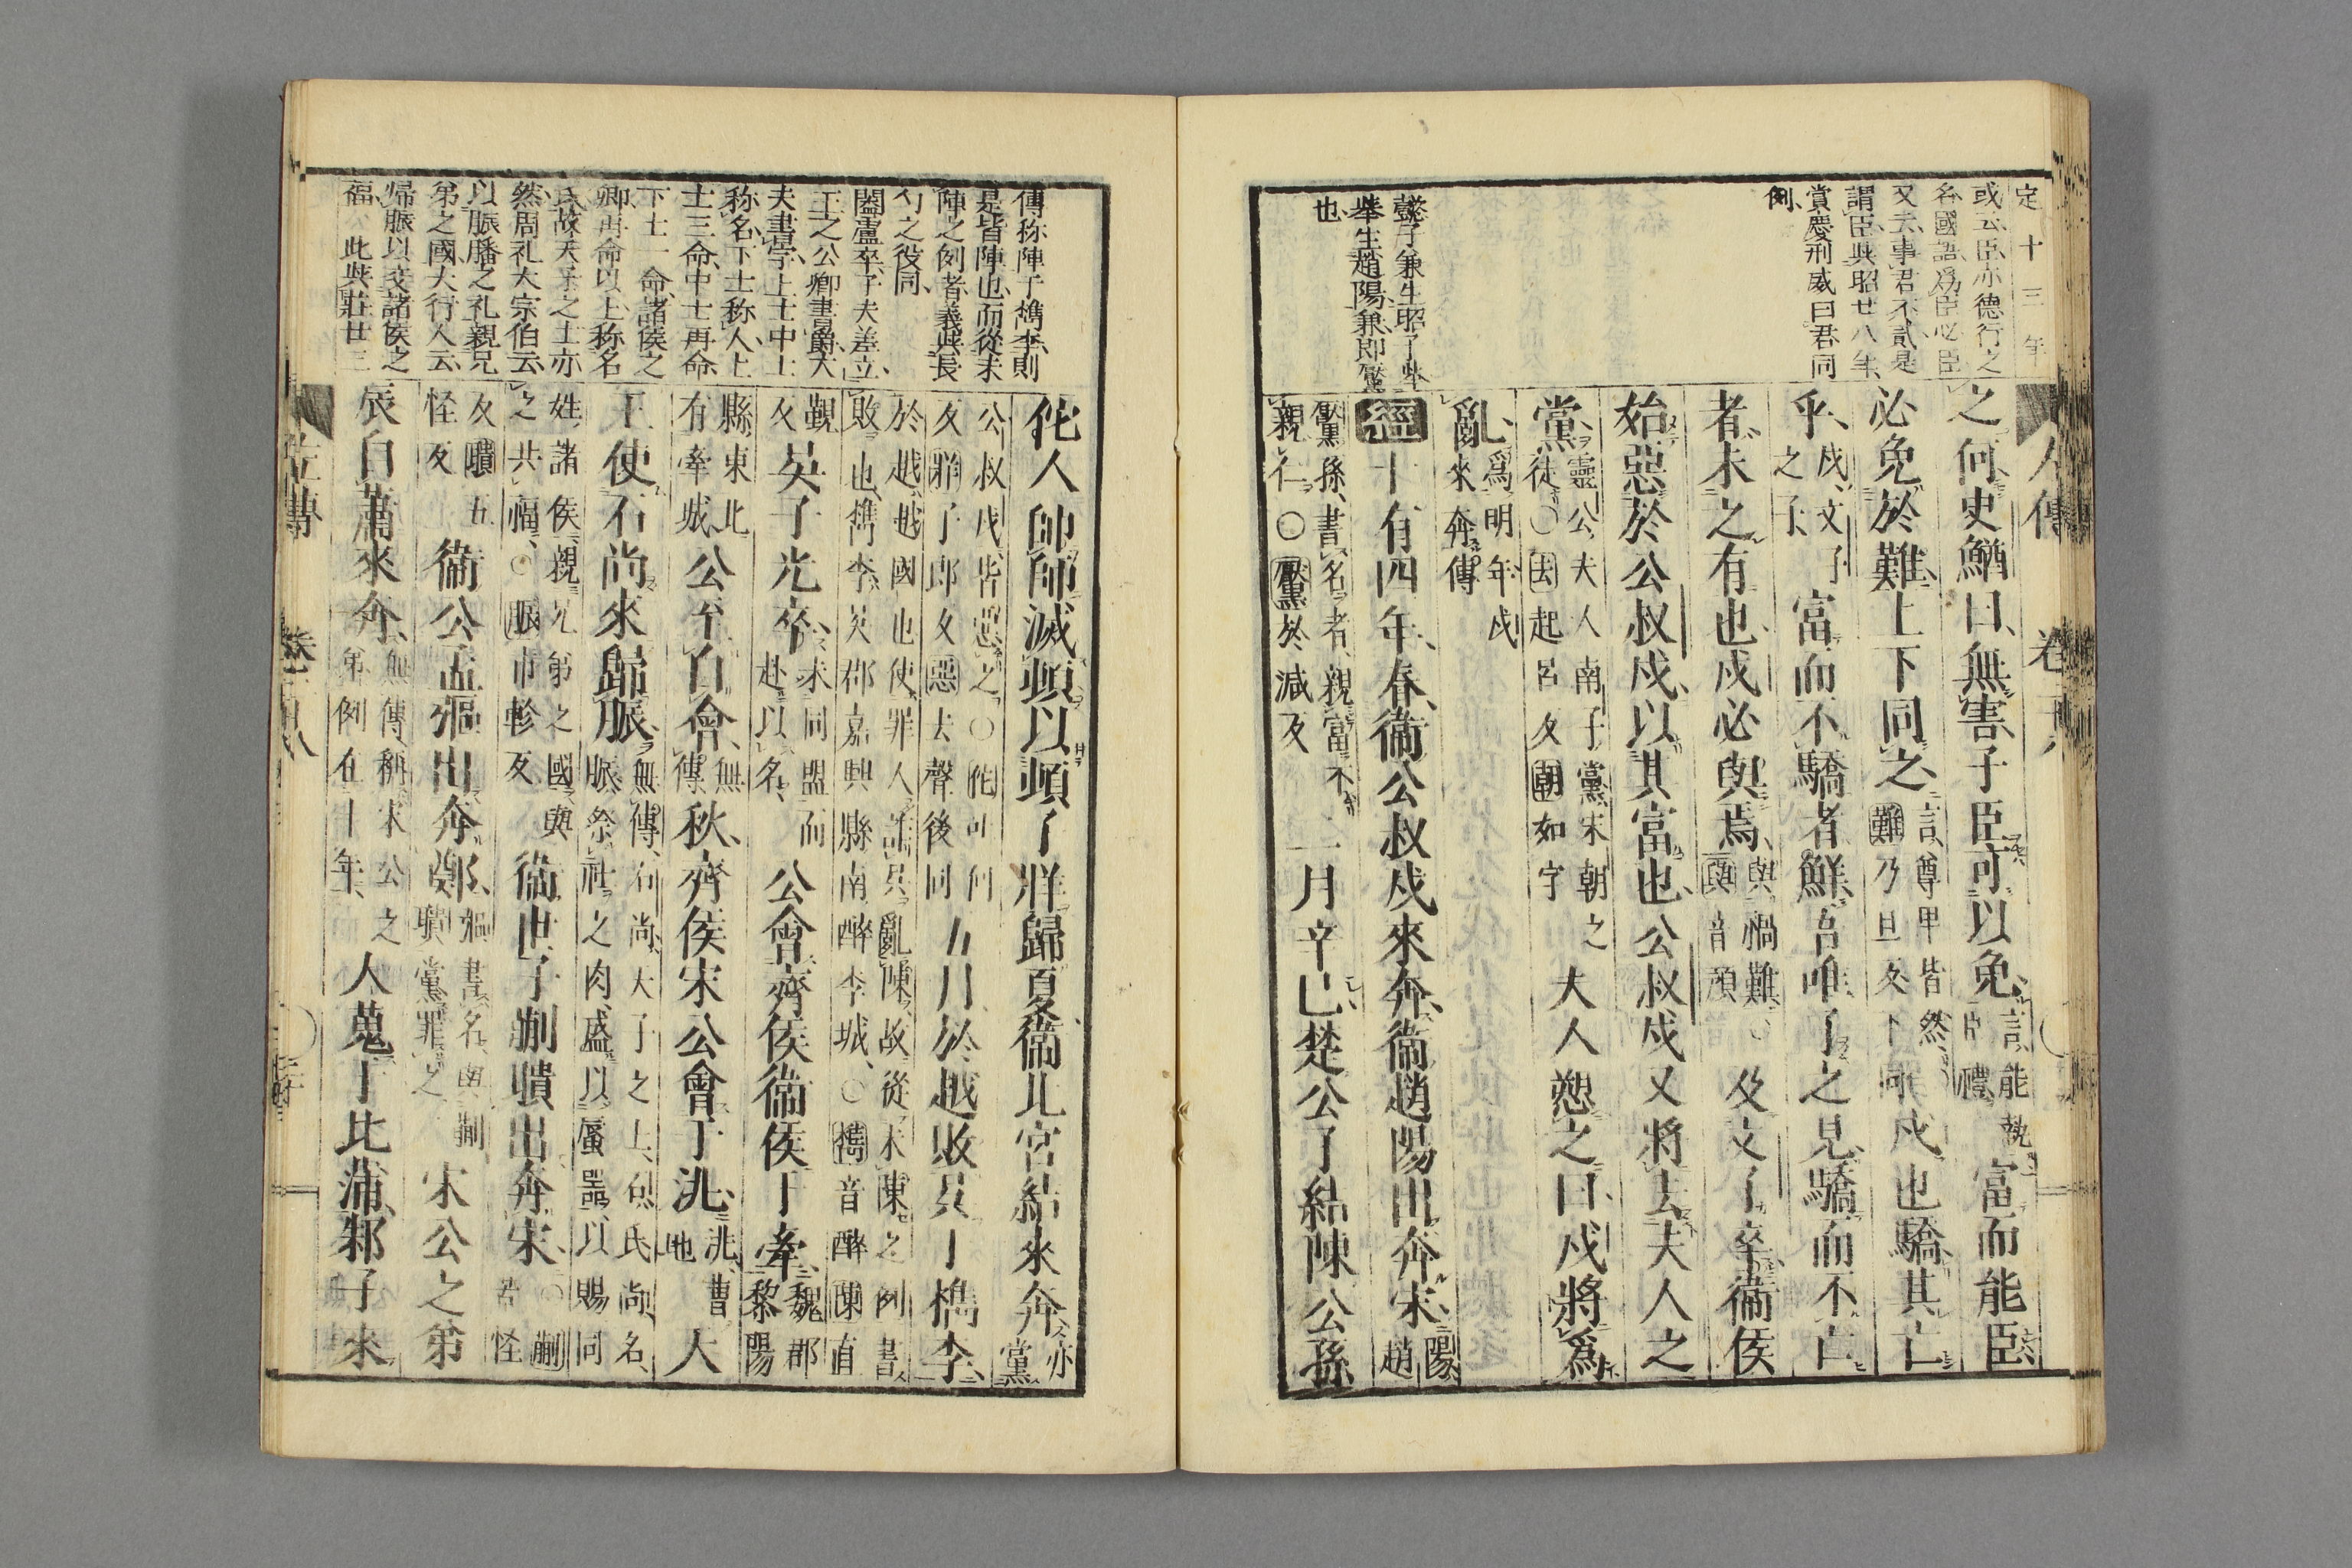 定十三年
或云臣亦德行之
名國語爲臣必臣
又云事君不貳是
謂臣與昭廿八年
賞慶刑威曰君同
例
懿子兼生昭子舉
舉生趙陽兼即黶
也
之何史鰌曰無害子臣可以免言能執臣禮富而能臣
必免於難上下同之言尊卑皆然難乃旦反下同戍也驕其亡
乎戍文子之子富而不驕者鮮吾唯子之見驕而不亡
者未之有也戍必與焉與禍難與音預及文子卒衞侯
始惡於公叔戍以其富也公叔戍又將去夫人之
黨靈公夫人南子黨宋朝之徒○去起呂反朝如字夫人愬之曰戍將爲
亂爲明年戍來奔傳
經十有四年春衞公叔戍來奔衞趙陽出奔宋陽趙
黶孫書名者親富不親仁○黶於減反二月辛巳楚公子結陳公孫
佗人帥師滅頓以頓子牂歸夏衞北宮結來奔亦黨
公叔戍皆惡之○佗徒何反牂子郎反惡去聲後同五月於越敗吳于檇李
於越越國也使罪人詐吳亂陳故從未陳之例書敗也檇李吳郡嘉興縣南醉李城○檇音醉陳直
覲反吳子光卒未同盟而赴以名公會齊侯衞侯于牽魏郡黎陽
縣東北有牽城公至自會無傳秋齊侯宋公會于洮洮曹地大
王使石尚來歸脤無傳石尚天子之士石氏尚名脤祭社之肉盛以蜃器以賜同
姓諸侯親兄弟之國與之共福○脤市軫反衞世子蒯聵出奔宋○蒯苦怪
反聵五怪反衞公孟彄出奔鄭彄書名與蒯聵黨罪之宋公之弟
辰自蕭來奔無傳稱宋公之弟例在十年大蒐于比蒲邾子來
傳称陣于檇李則
是皆陣也而從未
陣之例者義與長
勺之役同
闔盧卒子夫差立
王之公卿書爵大
夫書字上士中士
称名下士称人上
士三命中士再命
下士一命諸侯之
卿再命以上称名
氏故天子之士亦
然周礼大宗伯云
以脤膰之礼親兄
弟之國大行人云
歸脤以交諸侯之
福 此與莊廿三
左傳 卷二十八